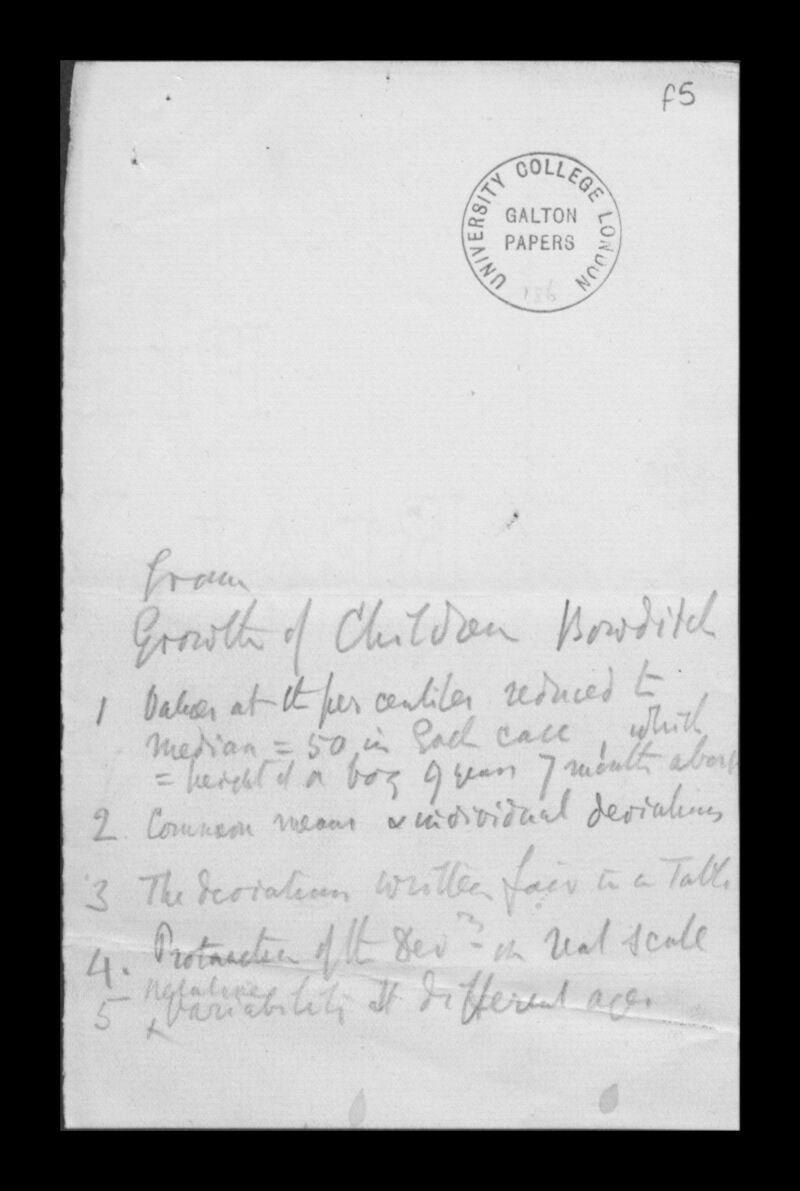 f5
UNIVERSITY COLLEGE LONDON
GALTON
PAPERS
186
From
Growth of Children Bowditch
1 Values at th per centiles reduced to
median = 50 in Each case, which
= height of a boy 9 years 7 months about
2 Common means & individual deviations
3 The deviations written fair in a Table
4. Protraction of th Devns on real scale
5 Relative
x Variability at different ages